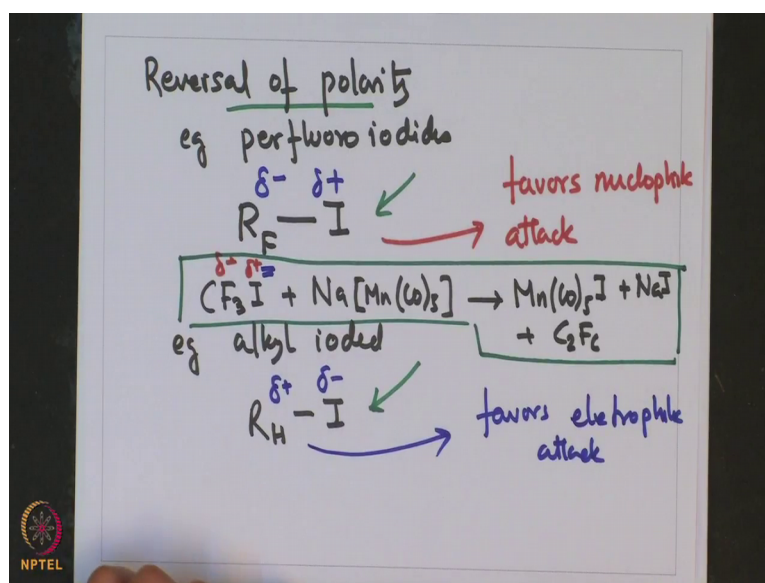 Reversal of polarity
eg perfluoro iodides
δ- δ+
R_F — I
favors nucleophile
attack
δ- δ+
CF₃I + Na[Mn(CO)₅] → Mn(CO)₅I + NaI
+ C₂F₆
eg alkyl ioded
δ+ δ-
R_H — I
favors eletrophile
attack
NPTEL